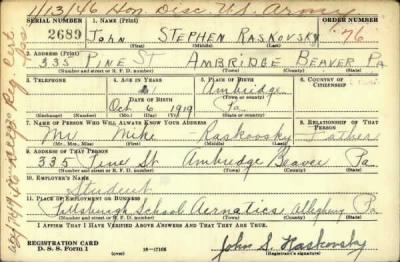 1/13/46 Hon. Disc. U.S. Army
SERIAL NUMBER 1. NAME (Print) ORDER NUMBER
2689 John STEPHEN RASKOVSKY 76
(First) (Middle) (Last)
2. ADDRESS (Print)
335 PINE ST AMBRIDGE BEAVER PA
(Number and street or R. F. D. number) (Town) (County) (State)
3. TELEPHONE 4. AGE IN YEARS 5. PLACE OF BIRTH 6. COUNTRY OF CITIZENSHIP
21 Ambridge
DATE OF BIRTH (Town or county)
Oct 6 1919 Pa
(Exchange) (Number) (Mo.) (Day) (Yr.) (State or country)
7. NAME OF PERSON WHO WILL ALWAYS KNOW YOUR ADDRESS 8. RELATIONSHIP OF THAT PERSON
Mr Mike Raskovsky Father
(Mr., Mrs., Miss) (First) (Middle) (Last)
9. ADDRESS OF THAT PERSON
335 Pine St Ambridge Beaver Pa
(Number and street or R. F. D. number) (Town) (County) (State)
10. EMPLOYER'S NAME
Student
11. PLACE OF EMPLOYMENT OR BUSINESS
Pittsburgh School Aernatics, Allegheny Pa
(Number and street or R. F. D. number) (Town) (County) (State)
I AFFIRM THAT I HAVE VERIFIED ABOVE ANSWERS AND THAT THEY ARE TRUE.
REGISTRATION CARD
D. S. S. Form 1 (over) 16—17105 John S. Raskovsky
(Registrant's signature)